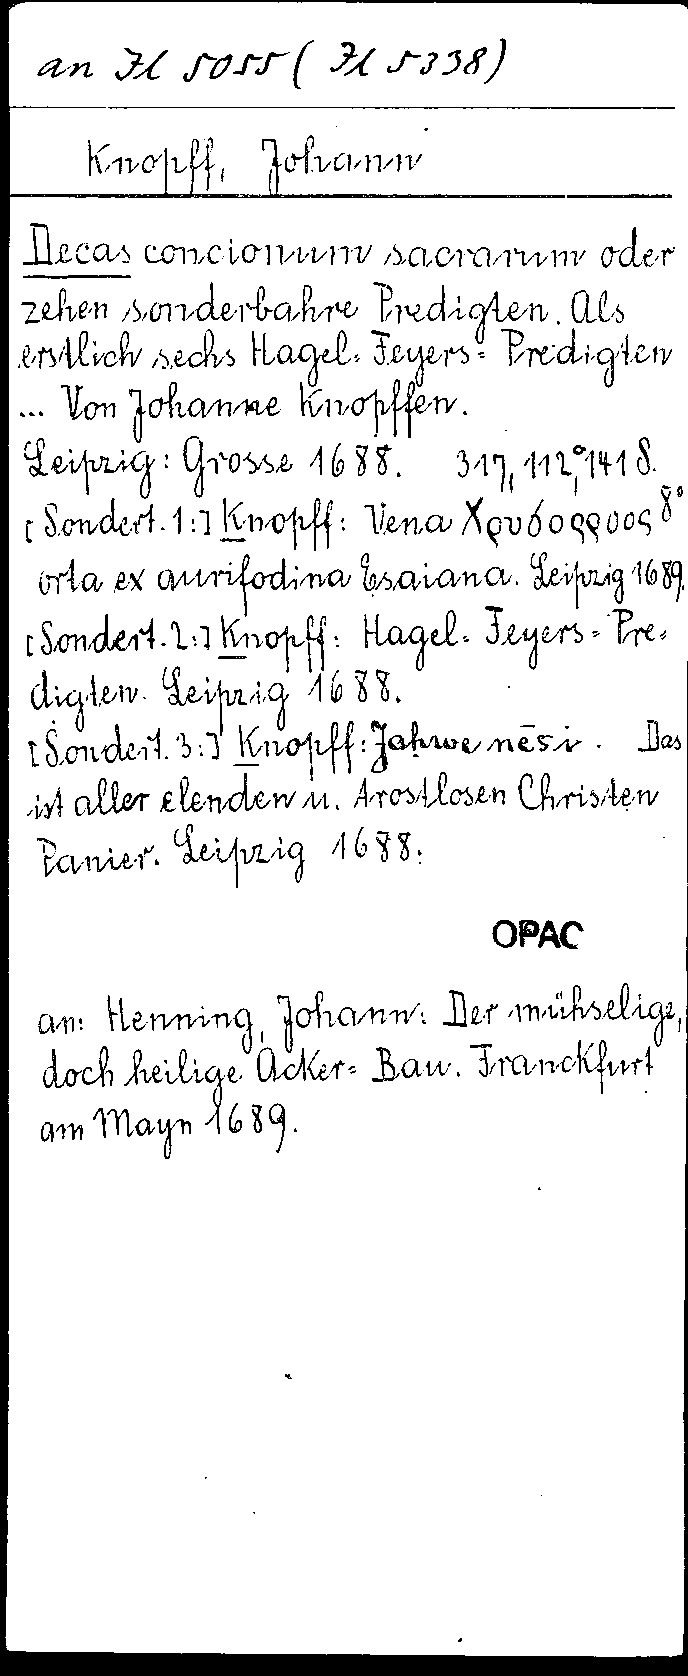 an Jl 5055 (Jl 5338)
Knopff, Johann
Decas concionum sacrarum oder
zehen sonderbahre Predigten. Als
erstlich sechs Hagel-Feyers-Predigten
... Von Johanne Knopffen.
Leipzig: Grosse 1688. 317, 112, 141 S.
8°
[Sondert. 1:] Knopff: Vena Χρυσοῤῥυος
orta ex aurifodina Esaiana. Leipzig 1689.
[Sondert. 2:] Knopff: Hagel-Feyers-Pre-
digten. Leipzig 1688.
[Sondert. 3:] Knopff: Jahwe nēsi. Das
ist aller elenden u. trostlosen Christen
Panier. Leipzig 1688.
OPAC
an: Henning, Johann: Der mühselige,
doch heilige Acker-Bau. Franckfurt
am Mayn 1689.